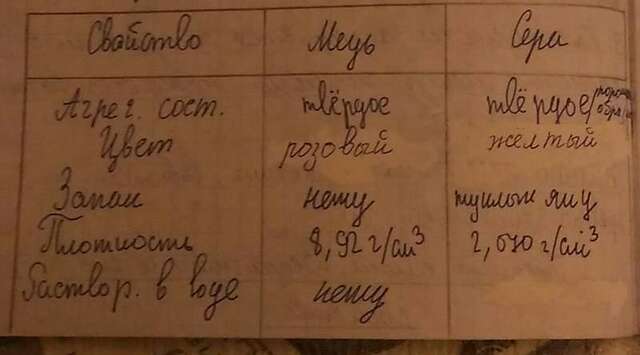 Свойство Медь Сера
Агрег. сост. твёрдое твёрдое/порошкообра
Цвет розовый желтый
Запах нету тухлых яиц
Плотность 8,92 г/см³ 2,070 г/см³
Раствор. в воде нету